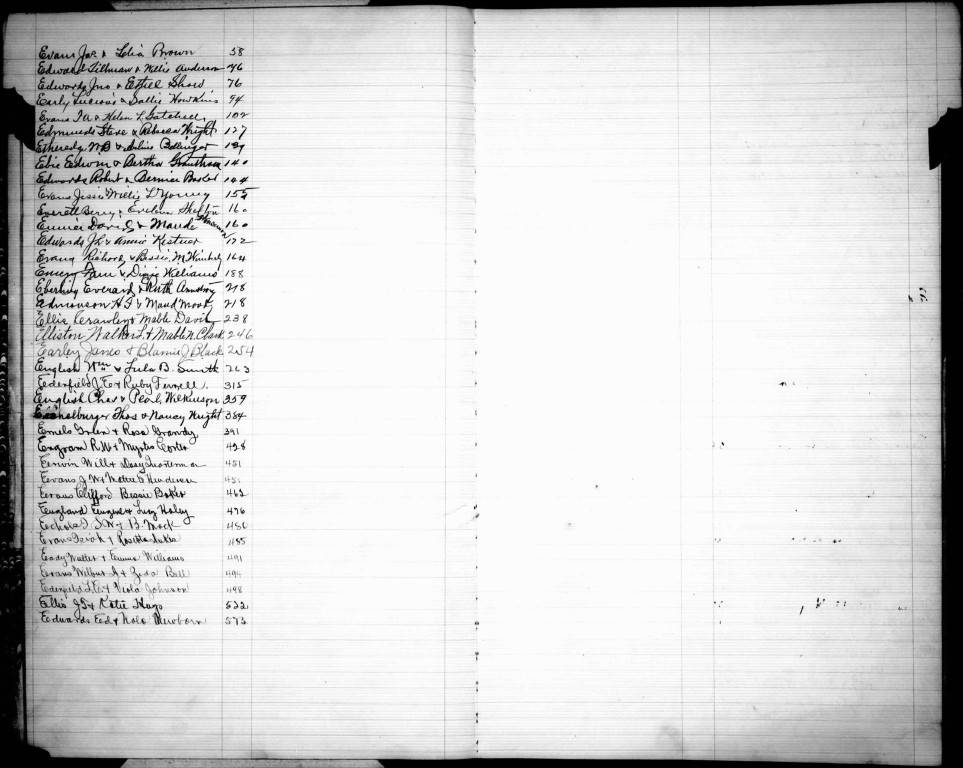 Evans Jas & Lelia Brown 58
Edwards Tillman & Willie Anderson 76
Edwards Jno & Ethel Shaw 76
Early Lucious & Sallie Hawkins 94
Evans & Helen L 102
Edmunds Steve & Rebecca Wright 127
Etheredg WB & Bellinger 139
Edwin & Bertha Grantham 140
Edwards Robert & Bernice 144
Evans Jessie Willie L Young 155
Everett Berry & Eveline Shelton 160
Davis & Maude 160
Edwards J L & Annie Kestner 172
Evans Richard & Bessie M Wimberly 164
Emery Sam & Dinzie Williams 188
Everard & Ruth Armstrong 218
Edmonson H & Maud Moody 218
Ellis Crawley & Mable Davis 238
Elliston Walker L & Mable N. Clark 246
Earley James & Blannie J Black 254
English Wm & Lula B. Smith 263
Edenfield J. E & Ruby Ferrell. 315
English Chas & Pearl Wilkinson 359
Eichelburger Thos & Nancy Wright 384
Green & Rosa Grandy 391
R W & Myrtis Carter 428
Erwin Will & Daisy Quarterman 451
Evans J W & Mattie S Henderson 451
Evans Clifford Bessie Baker 462
England Eugene & Lucy Haley 476
Echols & B. Mock 480
Evans & Rosetta 485
Eady Walter & Emma Williams 491
Evans Wilbur A & Zeda Bell 494
Edenfield L. E. & Viola Johnson 498
Ellis J S & Katie Hugo 532
Edwards Ed & Nola Mewborn 573